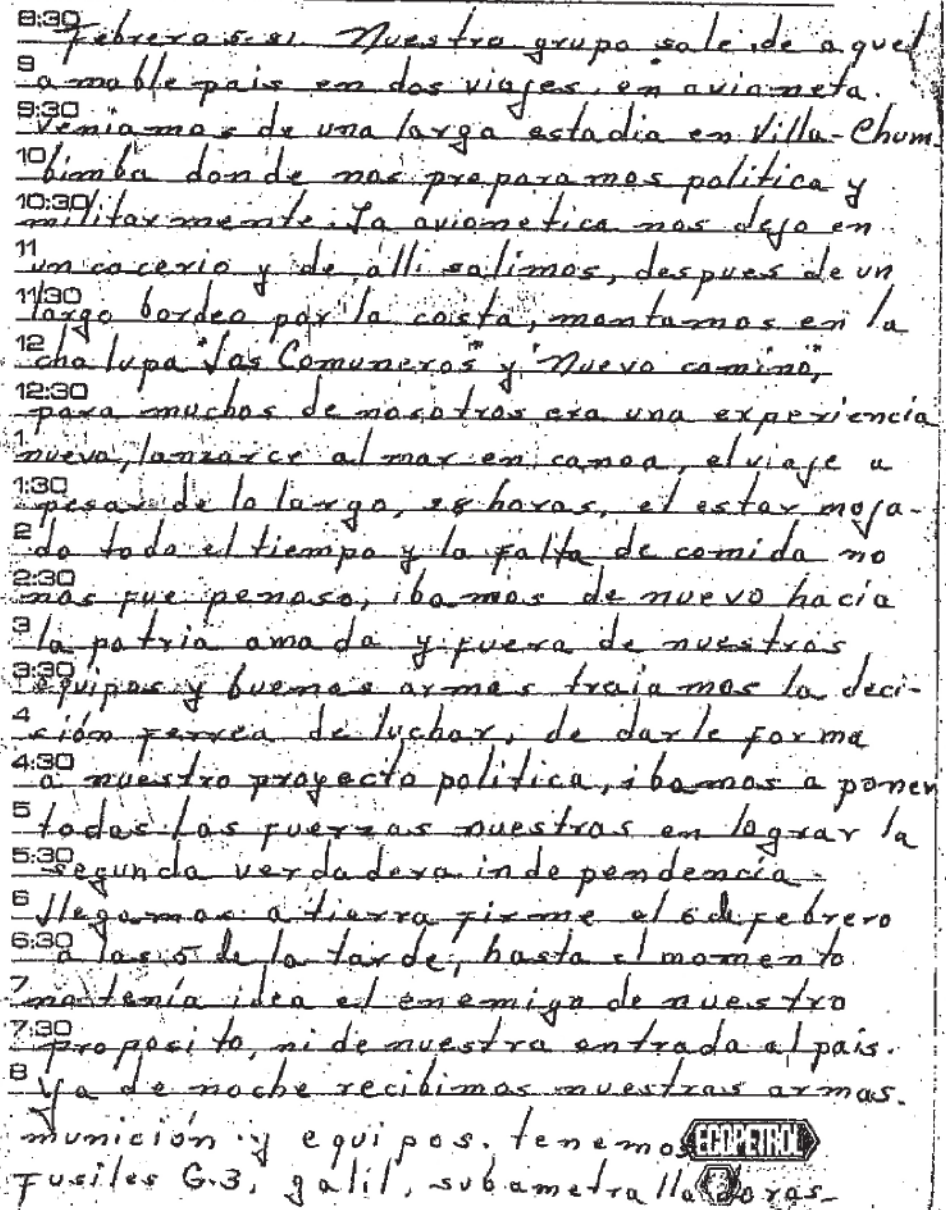 8:30 Febrero 5.81. Nuestro grupo sale de aquel
9 amable pais en dos viajes, en avioneta.
9:30 Veniamos de una larga estadia en Villa-Chum-
10 bimba donde nos preparamos politica y
10:30 militarmente. La avionetica nos dejo en
11 un cacerio y de alli salimos, despues de un
11:30 largo bordeo por la costa, montamos en la
12 chalupa "Los Comuneros" y "Nuevo camino",
12:30 para muchos de nosotros era una experiencia
1 nueva, lanzarce al mar en canoa, el viaje a
1:30 pesar de lo largo, 28 horas, el estar moja-
2 do todo el tiempo y la falta de comida no
2:30 nos fue penoso, ibamos de nuevo hacia
3 la patria amada y fuera de nuestros
3:30 equipos y buenas armas traiamos la deci-
4 ción ferrea de luchar, de darle forma
4:30 a nuestro proyecto politico, ibamos a poner
5 todas las fuerzas nuestras en lograr la
5:30 segunda verdadera independencia.
6 llegamos a tierra firme el 6 de febrero
6:30 a las 5 de la tarde, hasta el momento
7 no tenía idea el enemigo de nuestro
7:30 proposito, ni de nuestra entrada al pais.
8 Ya de noche recibimos nuestras armas.
munición y equipos. tenemos ECOPETROL
Fusiles G.3, galil, subametralladoras-